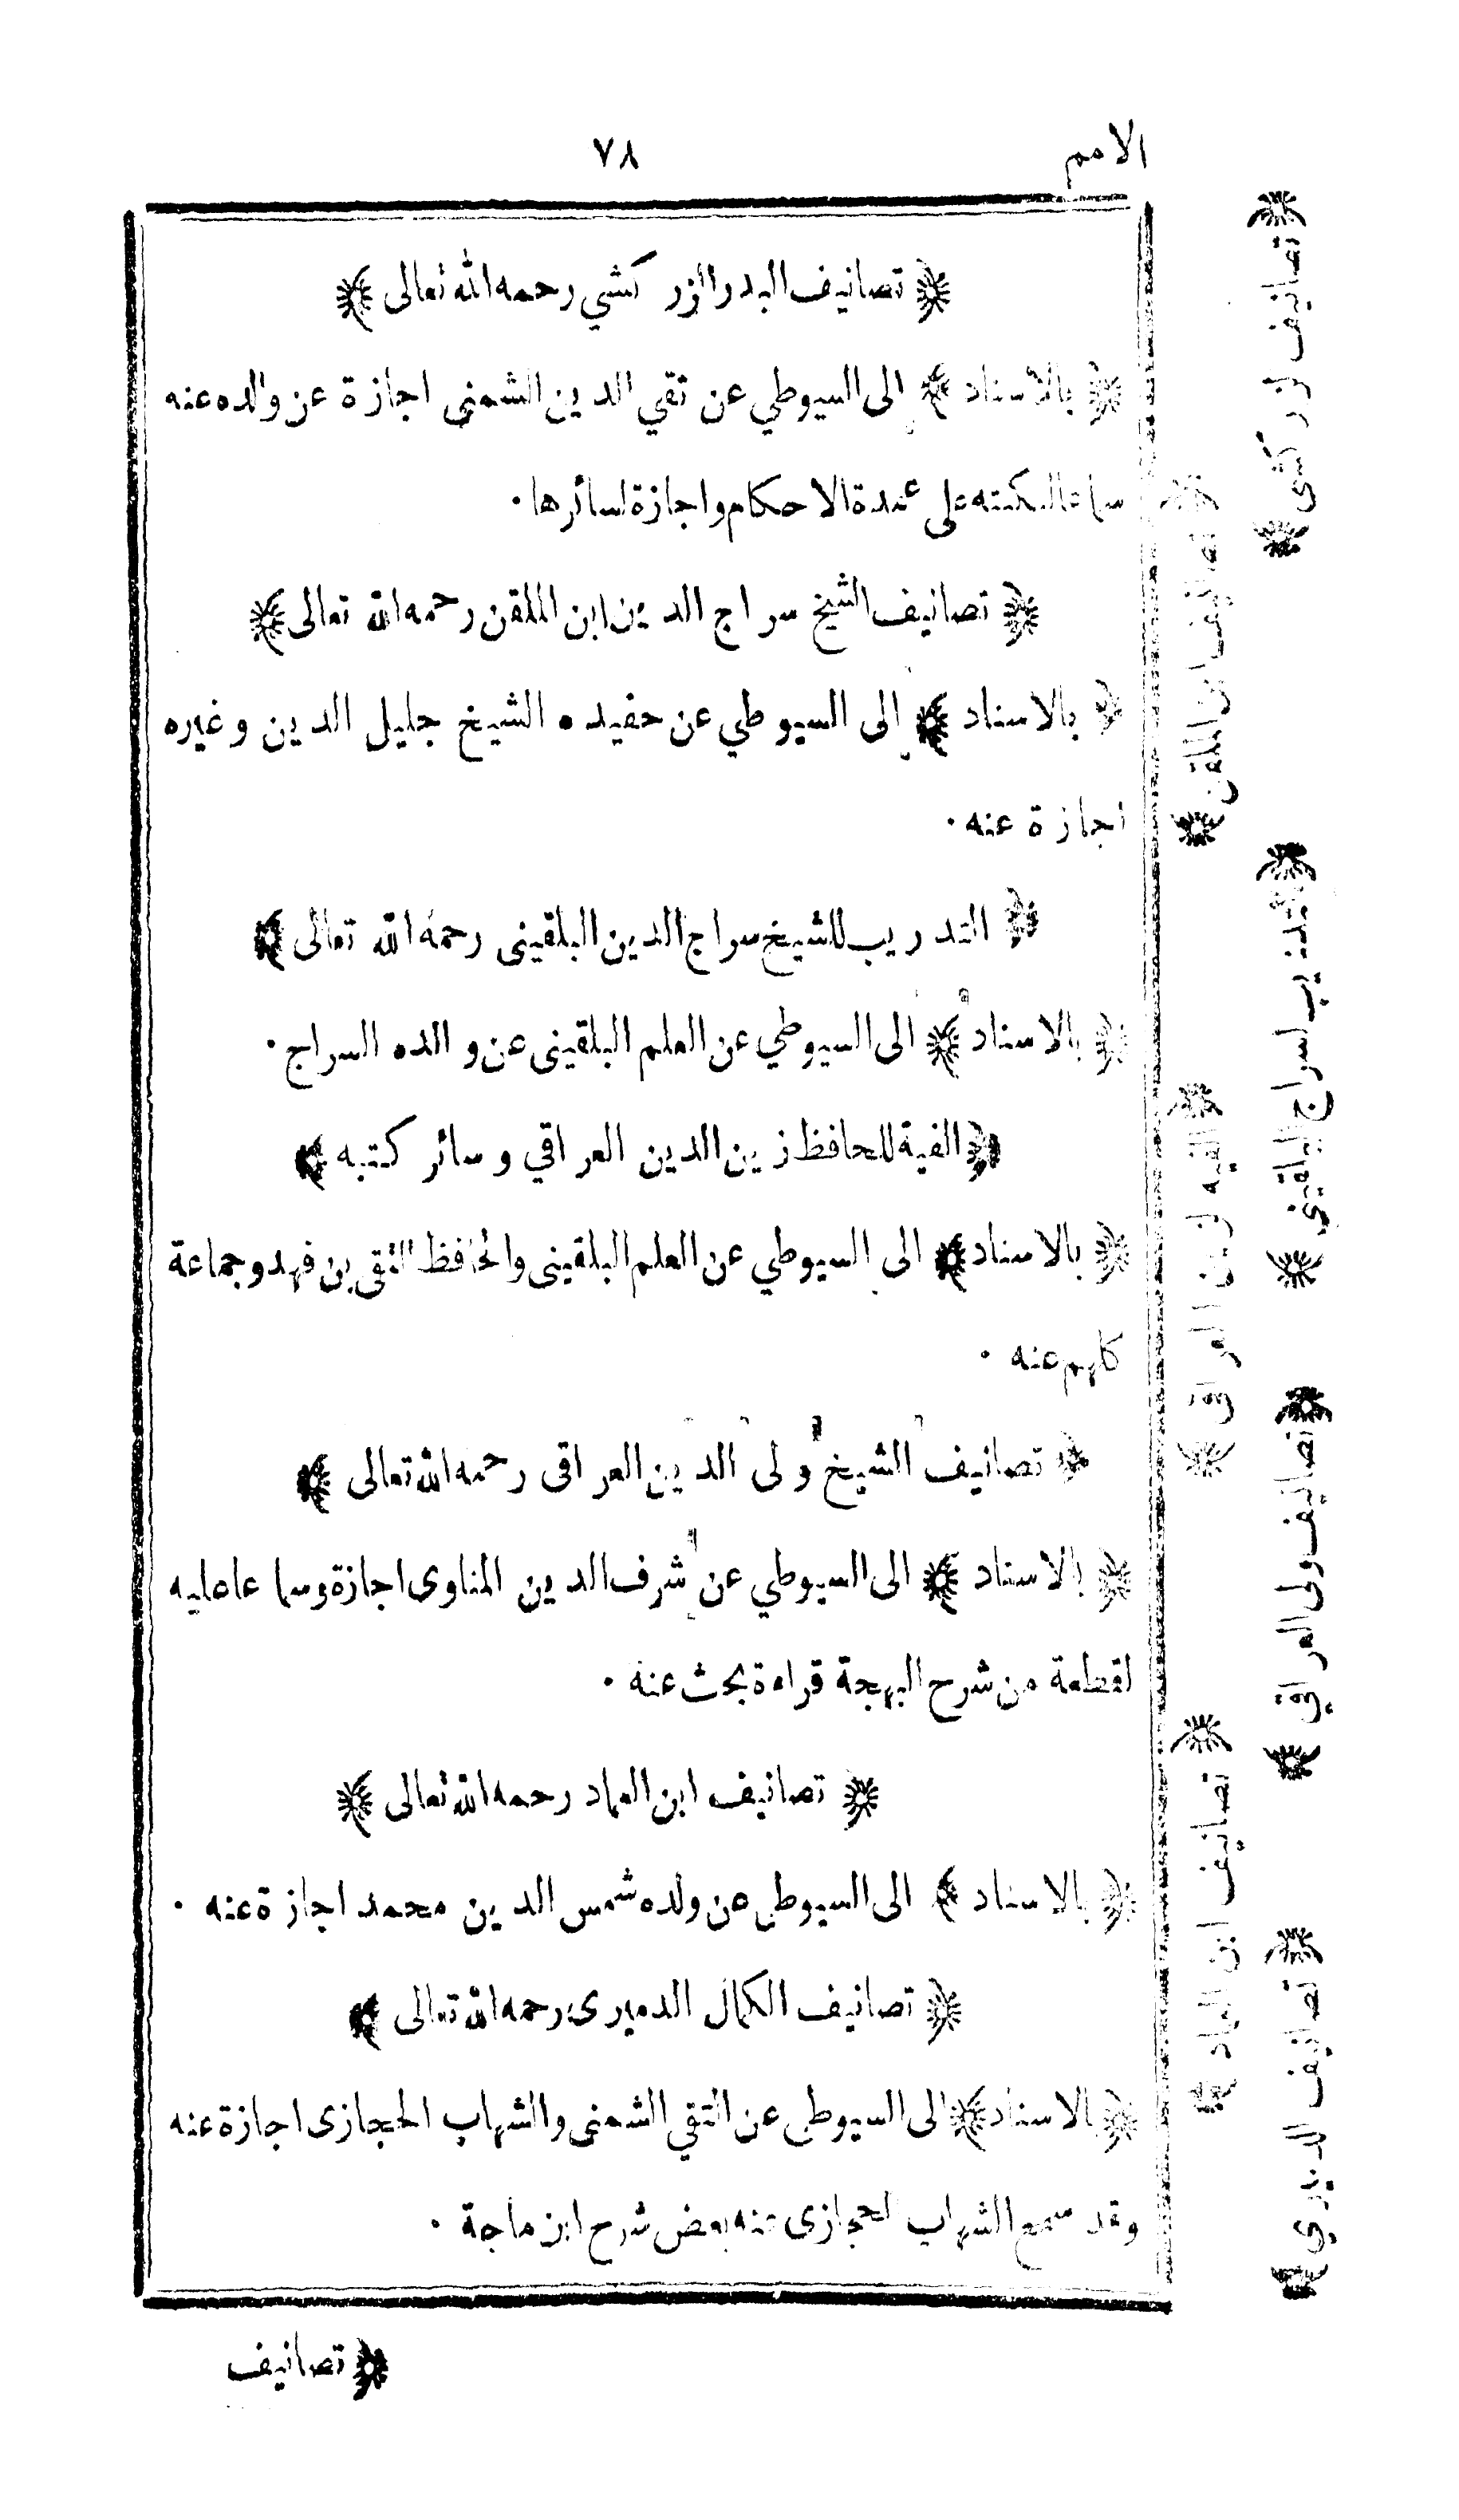 الامم
٧٨
﴿ تصانيف البدر الزركشي رحمه الله تعالى ﴾
﴿ بالاسناد ﴾ الى السيوطي عن تقي الدين الشمنى اجازة عن والده عنه
سماعا لنكته على عمدة الاحكام واجازة لسائرها ٠
﴿ تصانيف الشيخ سراج الدين ابن الملقن رحمه الله تعالى ﴾
﴿ بالاسناد ﴾ الى السيوطي عن حفيده الشيخ جليل الدين وغيره
اجازة عنه ٠
﴿ التدريب للشيخ سراج الدين البلقينى رحمه الله تعالى ﴾
﴿ بالاسناد ﴾ الى السيوطي عن العلم البلقينى عن والده السراج ٠
﴿ الفية للحافظ زين الدين العراقي وسائر كتبه ﴾
﴿ بالاسناد ﴾ الى السيوطي عن العلم البلقينى والحافظ التقى بن فهد وجماعة
كلهم عنه ٠
﴿ تصانيف الشيخ ولى الدين العراقى رحمه الله تعالى ﴾
﴿ بالاسناد ﴾ الى السيوطي عن شرف الدين المناوى اجازة وسماعا عليه
لقطعة من شرح البهجة قراءة بحث عنه ٠
﴿ تصانيف ابن العماد رحمه الله تعالى ﴾
﴿ بالاسناد ﴾ الى السيوطي عن ولده شمس الدين محمد اجازة عنه ٠
﴿ تصانيف الكمال الدميرى رحمه الله تعالى ﴾
﴿ بالاسناد ﴾ الى السيوطي عن التقي الشمنى والشهاب الحجازى اجازة عنه
وقد سمع الشهاب الحجازى منه بعض شرح ابن ماجة ٠
﴿ تصانيف
﴿ تصانيف لزركشى ﴾
﴿ تصانيف ابن الملقن ﴾
﴿ التدريب لسراج البلقيني ﴾
﴿ الفيه لزين العراقى ﴾
﴿ تصانيف ولى العراقي ﴾
﴿ تصانيف ابن العماد ﴾
﴿ تصانيف الدميري ﴾